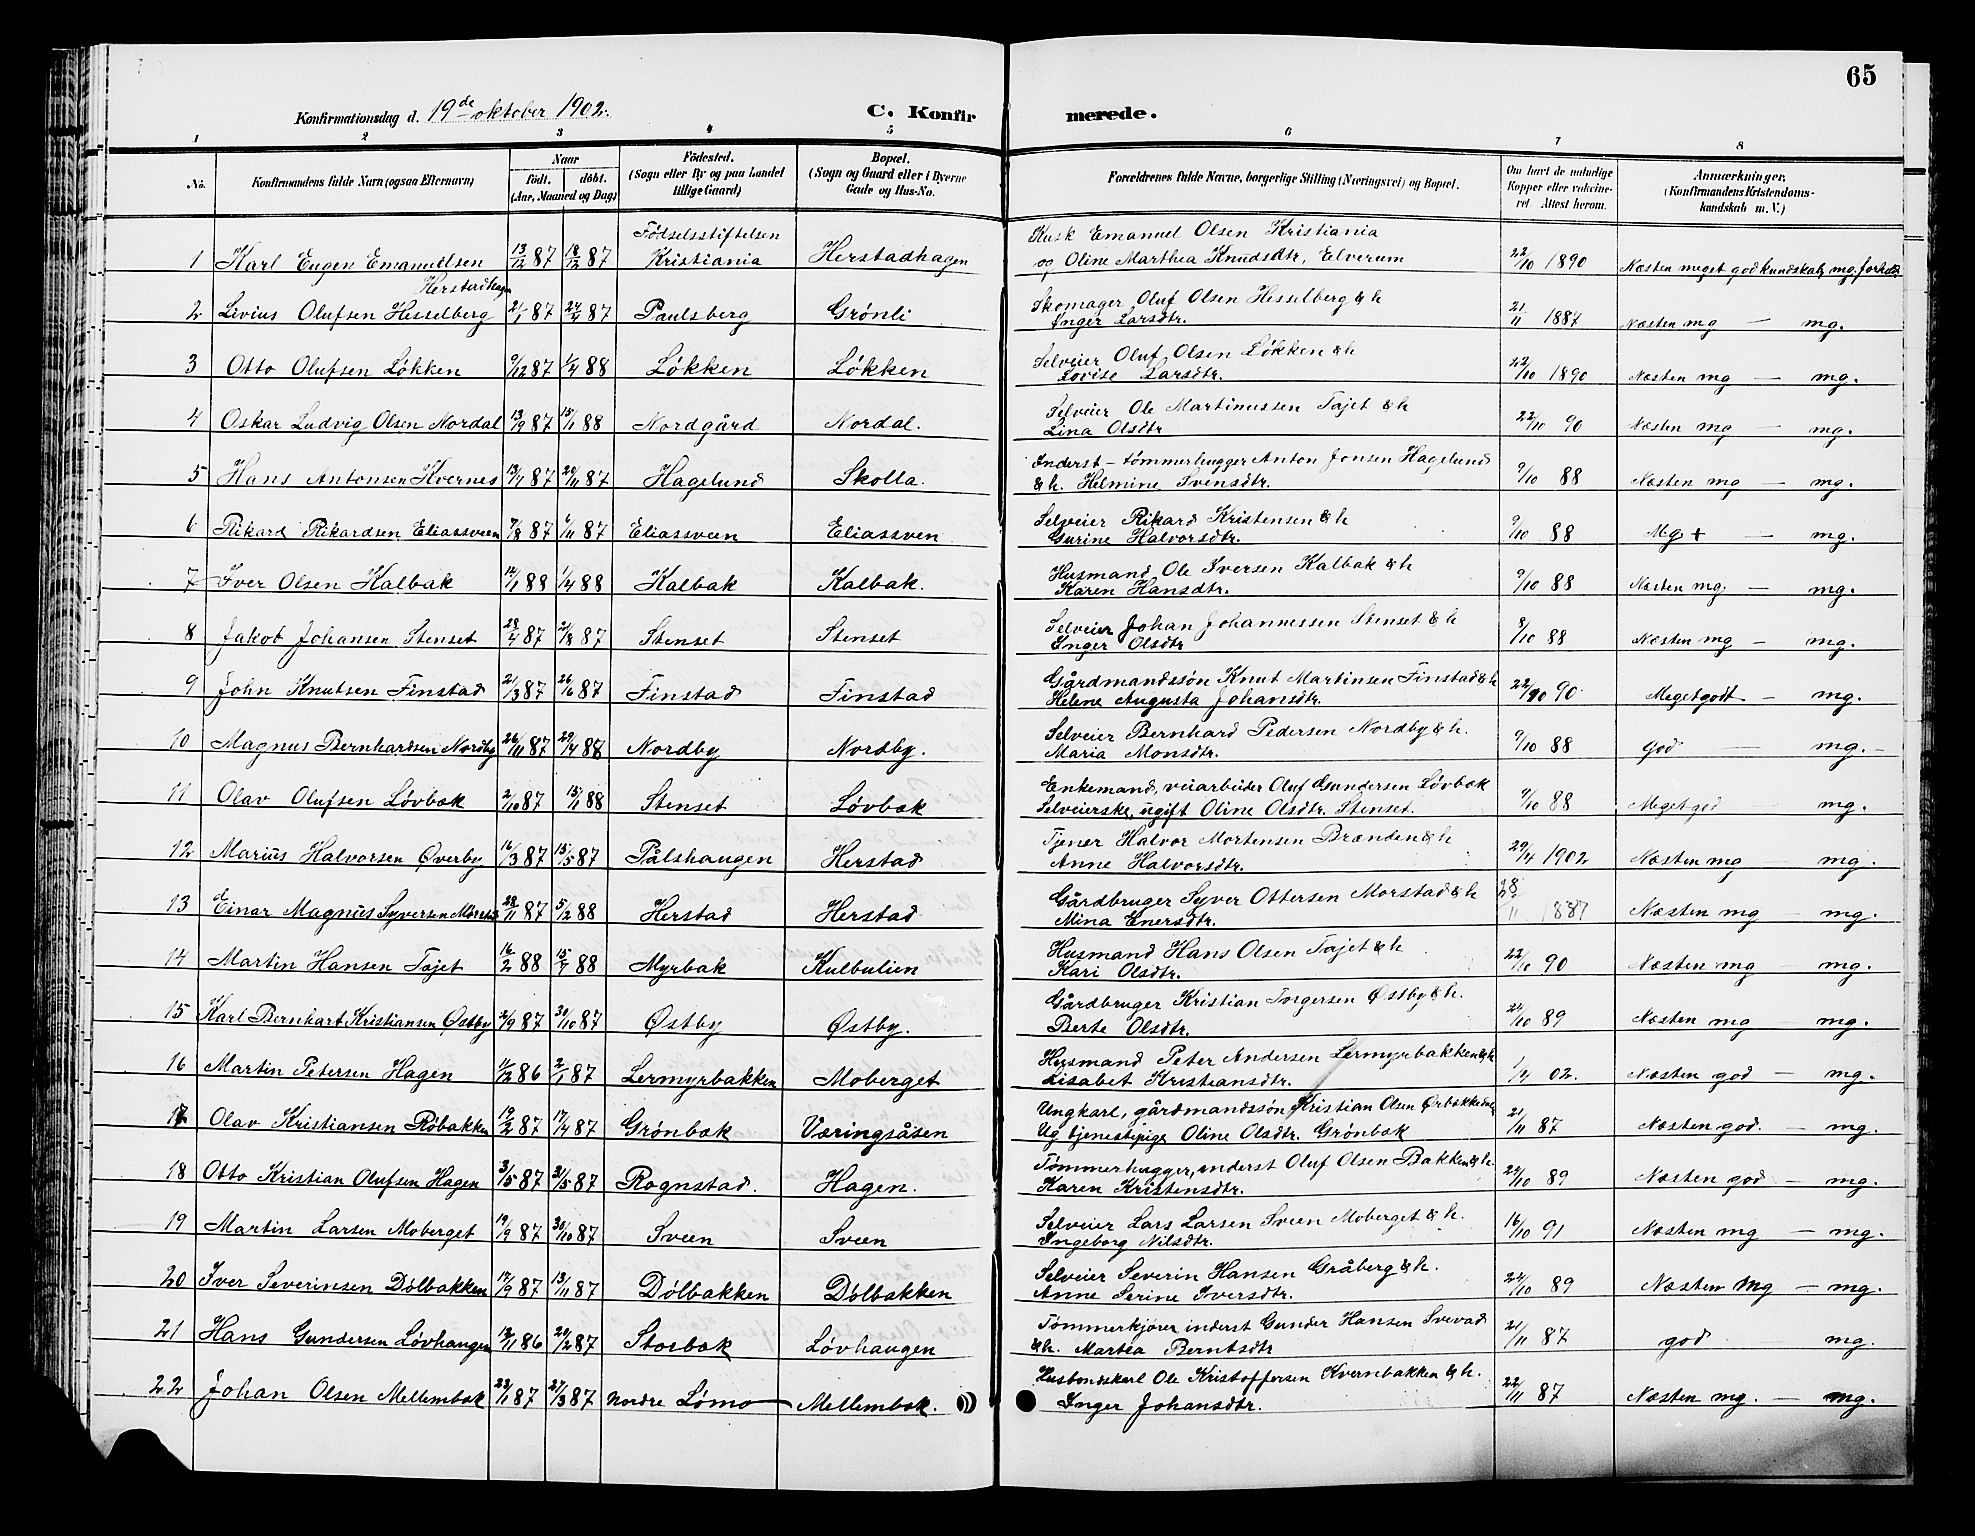 65
Konfirmationsdag d. 19de oktober 1902.
C. Konfirmerede.
1 2 3 4 5 6 7 8
No. Konfirmandens fulde Navn (ogsaa Efternavn) Naar födt. döbt. (Aar, Maaned og Dag) Födested. (Sogn eller By og paa Landet tillige Gaard) Bopæl. (Sogn og Gaard eller i Byerne Gade og Hus-No.) Forældrenes fulde Navne, borgerlige Stilling (Næringsvei) og Bopæl. Om havt de naturlige Kopper eller vakcineret Attest herom. Anmærkninger. (Konfirmandens Kristendomskundskab m. V.)
1 Karl Eugen Emanuelsen Herstadhagen 13/12 87 18/12 87 Födselsstiftelsen Kristiania Herstadhagen Kusk Emanuel Olsen Kristiania
og Oline Marthea Knudsdtr, Elverum 22/10 1890 Næsten meget god kundskab, mg. forhold
2 Livius Olufsen Hesselberg 21/1 87 24/4 87 Paulsberg Grønli Skomager Oluf Olsen Hesselberg & h
Inger Larsdtr. 21/11 1887 Næsten mg — mg.
3 Otto Olufsen Løkken 9/12 87 1/4 88 Løkken Løkken Selveier Oluf Olsen Løkken & h
Lovise Larsdtr. 22/10 1890 Næsten mg — mg.
4 Oskar Ludvig Olsen Nordal 13/9 87 15/1 88 Nordgård Nordal. Selveier Ole Martinussen Tajet & h
Lina Olsdtr 22/10 90 Næsten mg — mg.
5 Hans Antonsen Kvernes 13/7 87 20/11 87 Hagelund Skolla. Inderst - tømmerhugger Anton Jonsen Hagelund
& h. Helmine Svensdtr. 9/10 88 Næsten mg — mg.
6 Rikard Rikardsen Eliassveen 7/8 87 6/11 87 Eliassveen Eliassven Selveier Rikard Kristensen & h
Gurine Halvorsdtr. 9/10 88 Mg + — mg.
7 Iver Olsen Kalbak 12/1 88 1/4 88 Kalbak Kalbak. Husmand Ole Iversen Kalbak & h
Karen Hansdtr. 9/10 88 Næsten mg — mg.
8 Jakob Johansen Stenset 28/4 87 21/8 87 Stenset Stenset Selveier Johan Johannessen Stenset & h
Inger Olsdtr 8/10 88 Næsten mg — mg.
9 John Knutsen Finstad 21/3 87 26/6 87 Finstad Finstad Gårdmandssön Knut Martinsen Finstad & h
Helene Augusta Johansdtr. 22/10 90. Meget godt — mg.
10 Magnus Bernhardsen Nordby 26/11 87 29/4 88 Nordby Nordby. Selveier Bernhard Pedersen Nordby & h.
Maria Monsdtr. 9/10 88 god — mg.
11 Olav Olufsen Løvbæk 2/10 87 15/1 88 Stenset Løvbæk Enkemand, veiarbeider Oluf Gundersen Løvbæk
Selveierske, ugift Oline Olsdtr. Stenset. 9/10 88 Meget god mg.
12 Marius Halvorsen Øverby 16/3 87 15/5 87 Pålshaugen Herstad Tjener Halvor Mortensen Brænden & h
Anne Halvorsdtr. 29/4 1902 Næsten mg mg.
13 Einar Magnus Syversen Morstad 28/11 87 5/2 88 Herstad Herstad Gårdbruger Syver Ottersen Morstad & h
Mina Enersdtr. 28/11 1887 Næsten mg — mg.
14 Martin Hansen Tajet 16/2 88 15/4 88 Myrbak Kulbulien Husmand Hans Olsen Tajet & h
Kari Olsdtr. 22/10 90 Næsten mg mg.
15 Karl Bernhart Kristiansen Østby 2/9 87 30/10 87 Østby Østby. Gårdbruger Kristian Torgersen Østby & h.
Berte Olsdtr. 24/10 89 Næsten mg mg.
16 Martin Petersen Hagen 11/12 86 2/1 87 Lermyrbakken Moberget Husmand Peter Andersen Lermyrbakken & h
Lisabet Kristiansdtr. 1/4 02. Næsten god — mg.
17 Olav Kristiansen Röbakken 19/2 87 17/4 87 Grønbæk Væringsåsen Ungkarl, gårdmandssön Kristian Olsen
Ug tjenestepige Oline Olsdtr. Grønbæk 21/11 87 Næsten god. — mg.
18 Otto Kristian Olufsen Hagen 3/5 87 31/5 87 Rognstad. Hagen. Tømmerhugger, inderst Oluf Olsen Bakken & h.
Karen Kristensdtr. 24/10 89 Næsten god — mg.
19 Martin Larsen Moberget 19/9 87 30/10 87 Sveen Sveen Selveier Lars Larsen Sveen Moberget & h.
Ingeborg Nilsdtr. 16/10 91 Næsten mg — mg.
20 Iver Severinsen Dölbakken 17/9 87 13/11 87 Dölbakken Dölbakken Selveier Severin Hansen Gråberg & h.
Anne Serine Iversdtr. 24/10 89 Næsten Mg — mg.
21 Hans Gundersen Løvhaugen 12/11 86 20/2 87 Stosbæk Løvhaugen Tømmerkjører, inderst Gunder Hansen Svevad
& h. Martea Berntsdtr 21/11 87 god mg.
22 Johan Olsen Mellembæk 22/1 87 27/3 87 Nordre Lømo Mellembæk. Husbondskarl Ole Kristoffersen Kvernbakken & h.
Inger Johansdtr. 22/11 87 Næsten mg. — mg.